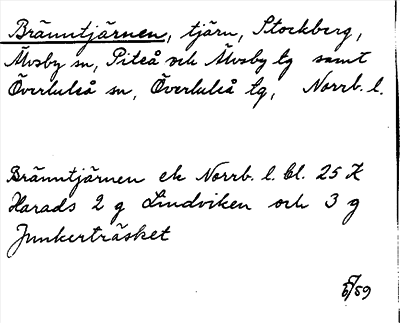 Bränntjärnen, tjärn, Stockberg,
Älvsby sn, Piteå och Älvsby tg samt
Överluleå sn, Överluleå tg, Norrb. l.
Bränntjärnen ek Norrb. l. bl. 25 K
Harads 2 g Lindviken och 3 g
Junkerträsket